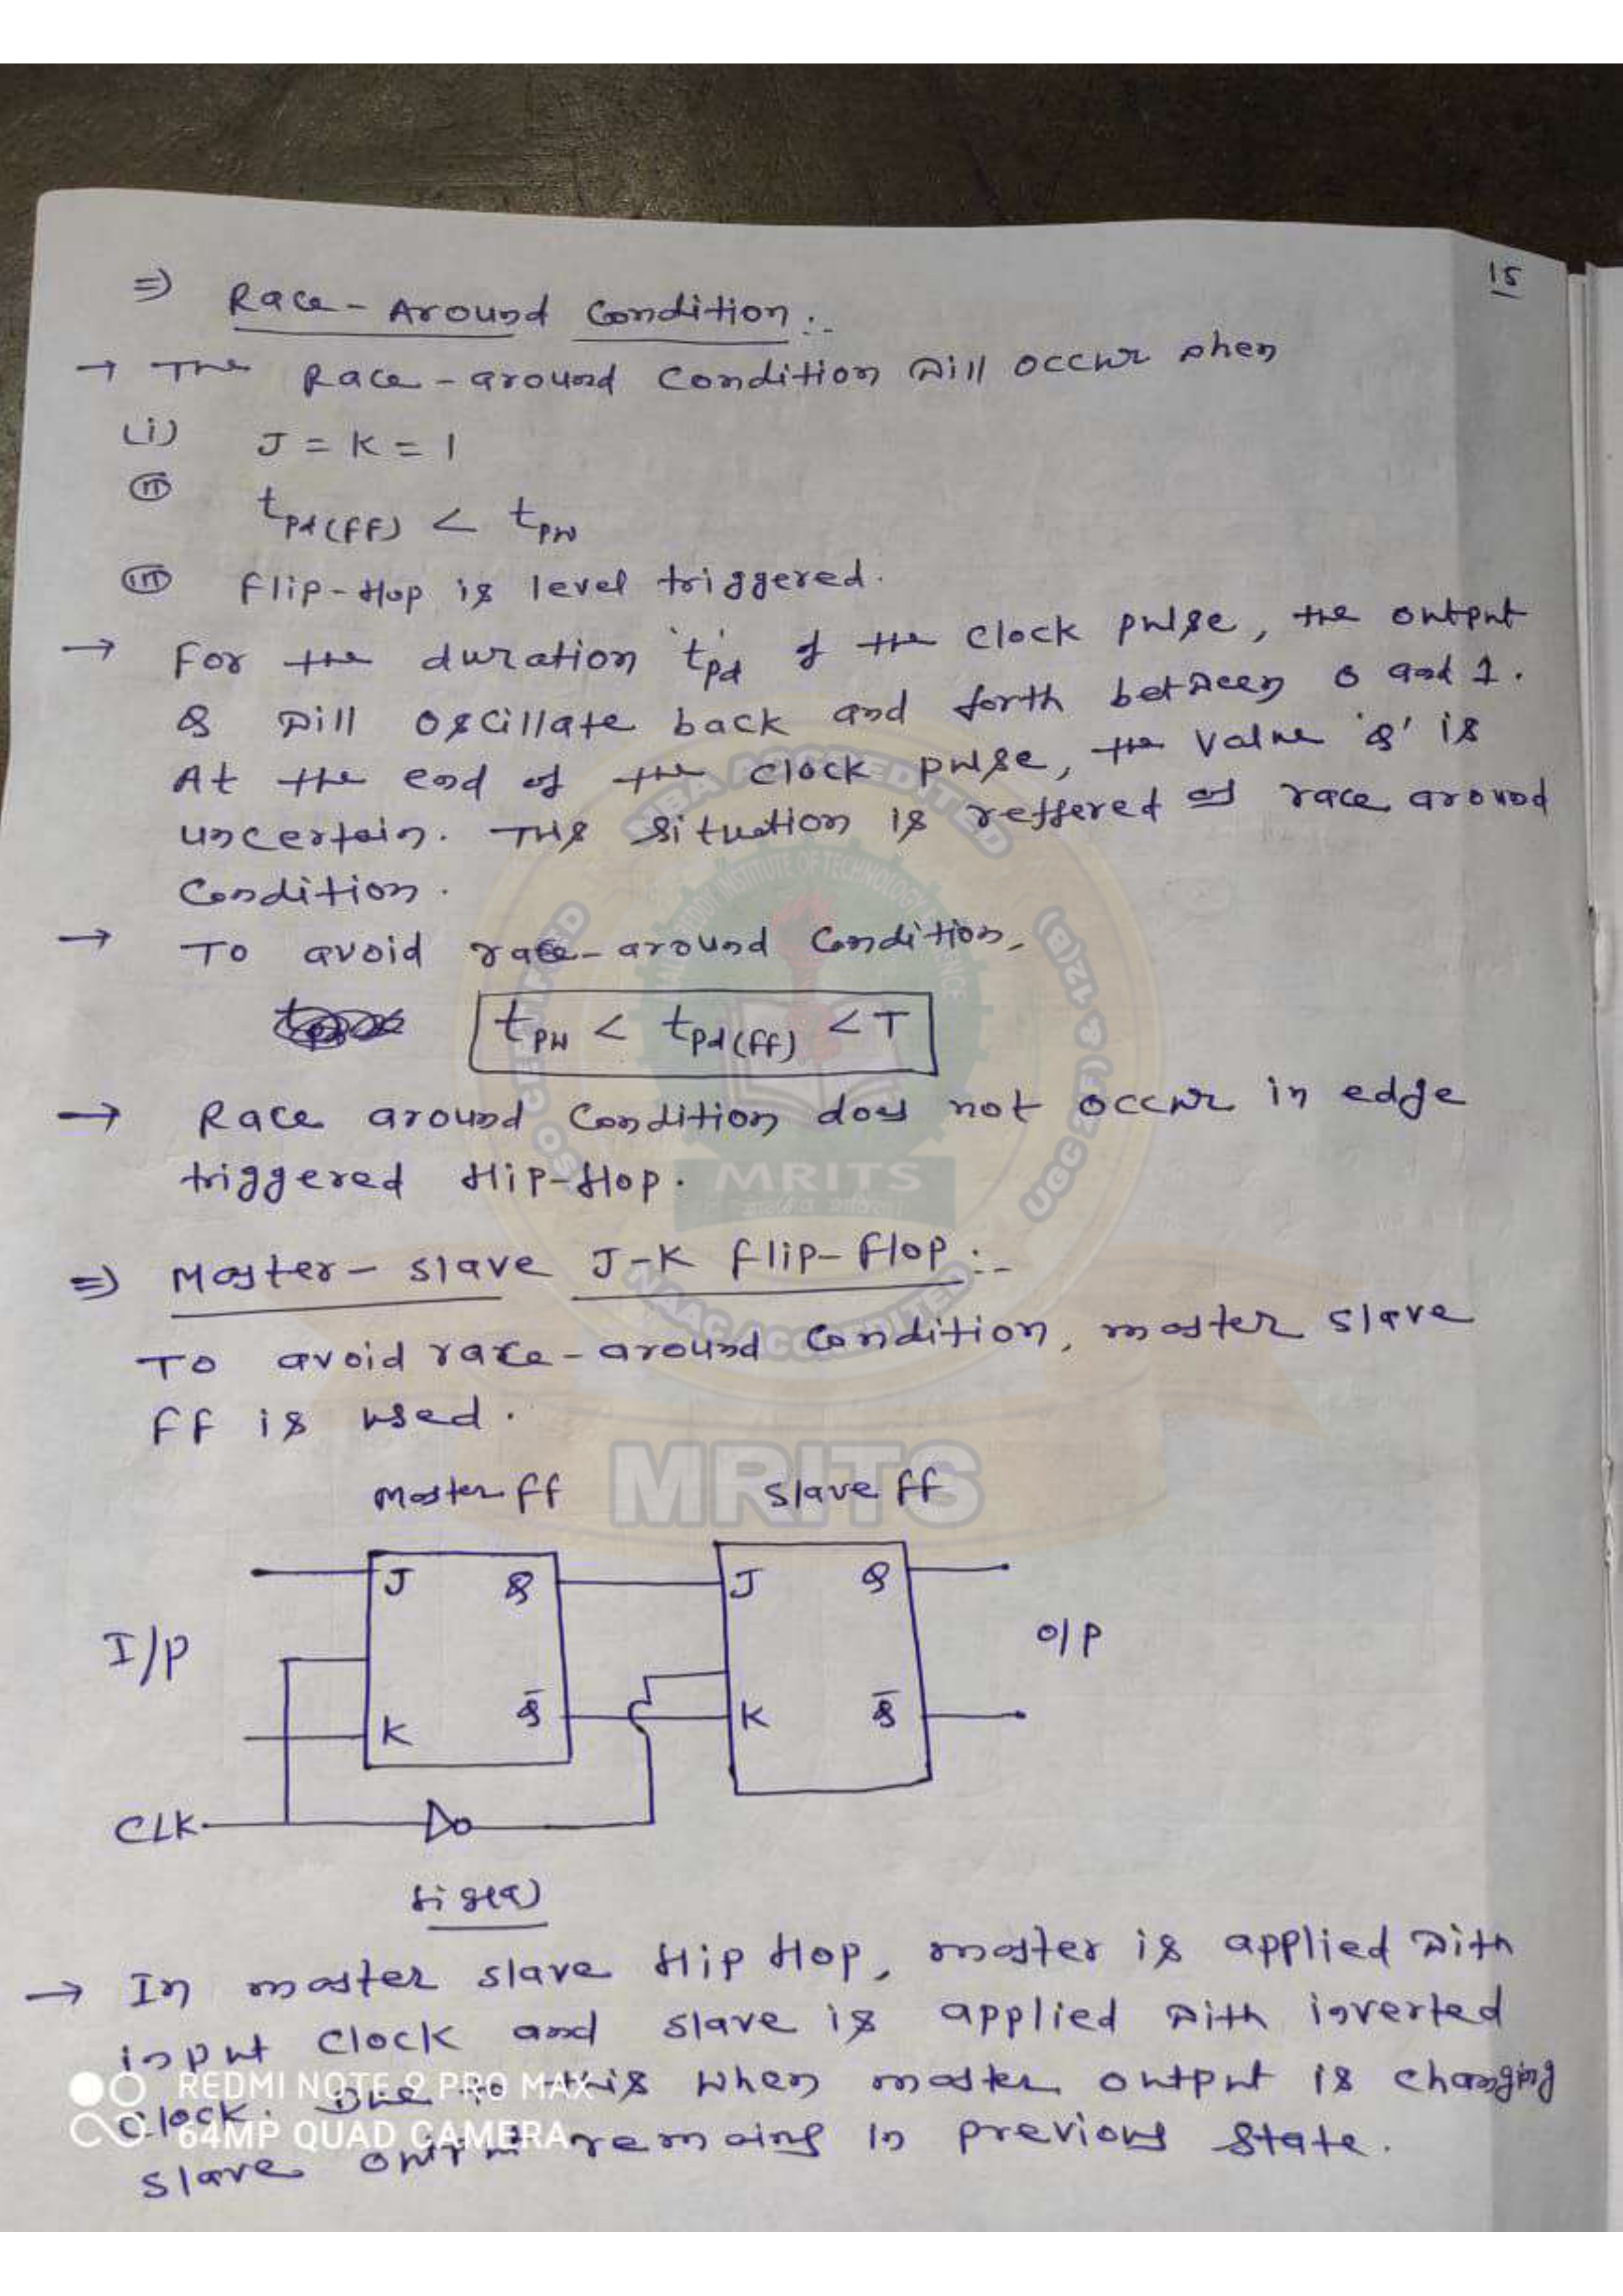 15
⇒ Race-Around Condition :-
→ The Race-around Condition will occur when
(i) J = K = 1
(ii) tpd(FF) < tpw
(iii) Flip-flop is level triggered.
→ For the duration 'tpd' of the clock pulse, the output
Q will oscillate back and forth between 0 and 1.
At the end of the clock pulse, the value 'Q' is
uncertain. This situation is reffered as race around
Condition.
→ To avoid race-around Condition,
tpw < tpd(FF) < T
→ Race around Condition does not occur in edge
triggered flip-flop.
⇒ Master-slave J-K Flip-Flop :-
To avoid race-around Condition, master slave
FF is used.
Master FF Slave FF
J Q J Q
I/P O/P
K Q̅ K Q̅
CLK
fig(a)
→ In master slave flip flop, master is applied with
input clock and slave is applied with inverted
clock. Due to this when master output is changing
slave output remains in previous state.
REDMI NOTE 9 PRO MAX
64MP QUAD CAMERA
NBA ACCREDITED
INSTITUTE OF TECHNOLOGY
UGC 2(F) & 12(B)
MRITS
NAAC ACCREDITED
MRITS